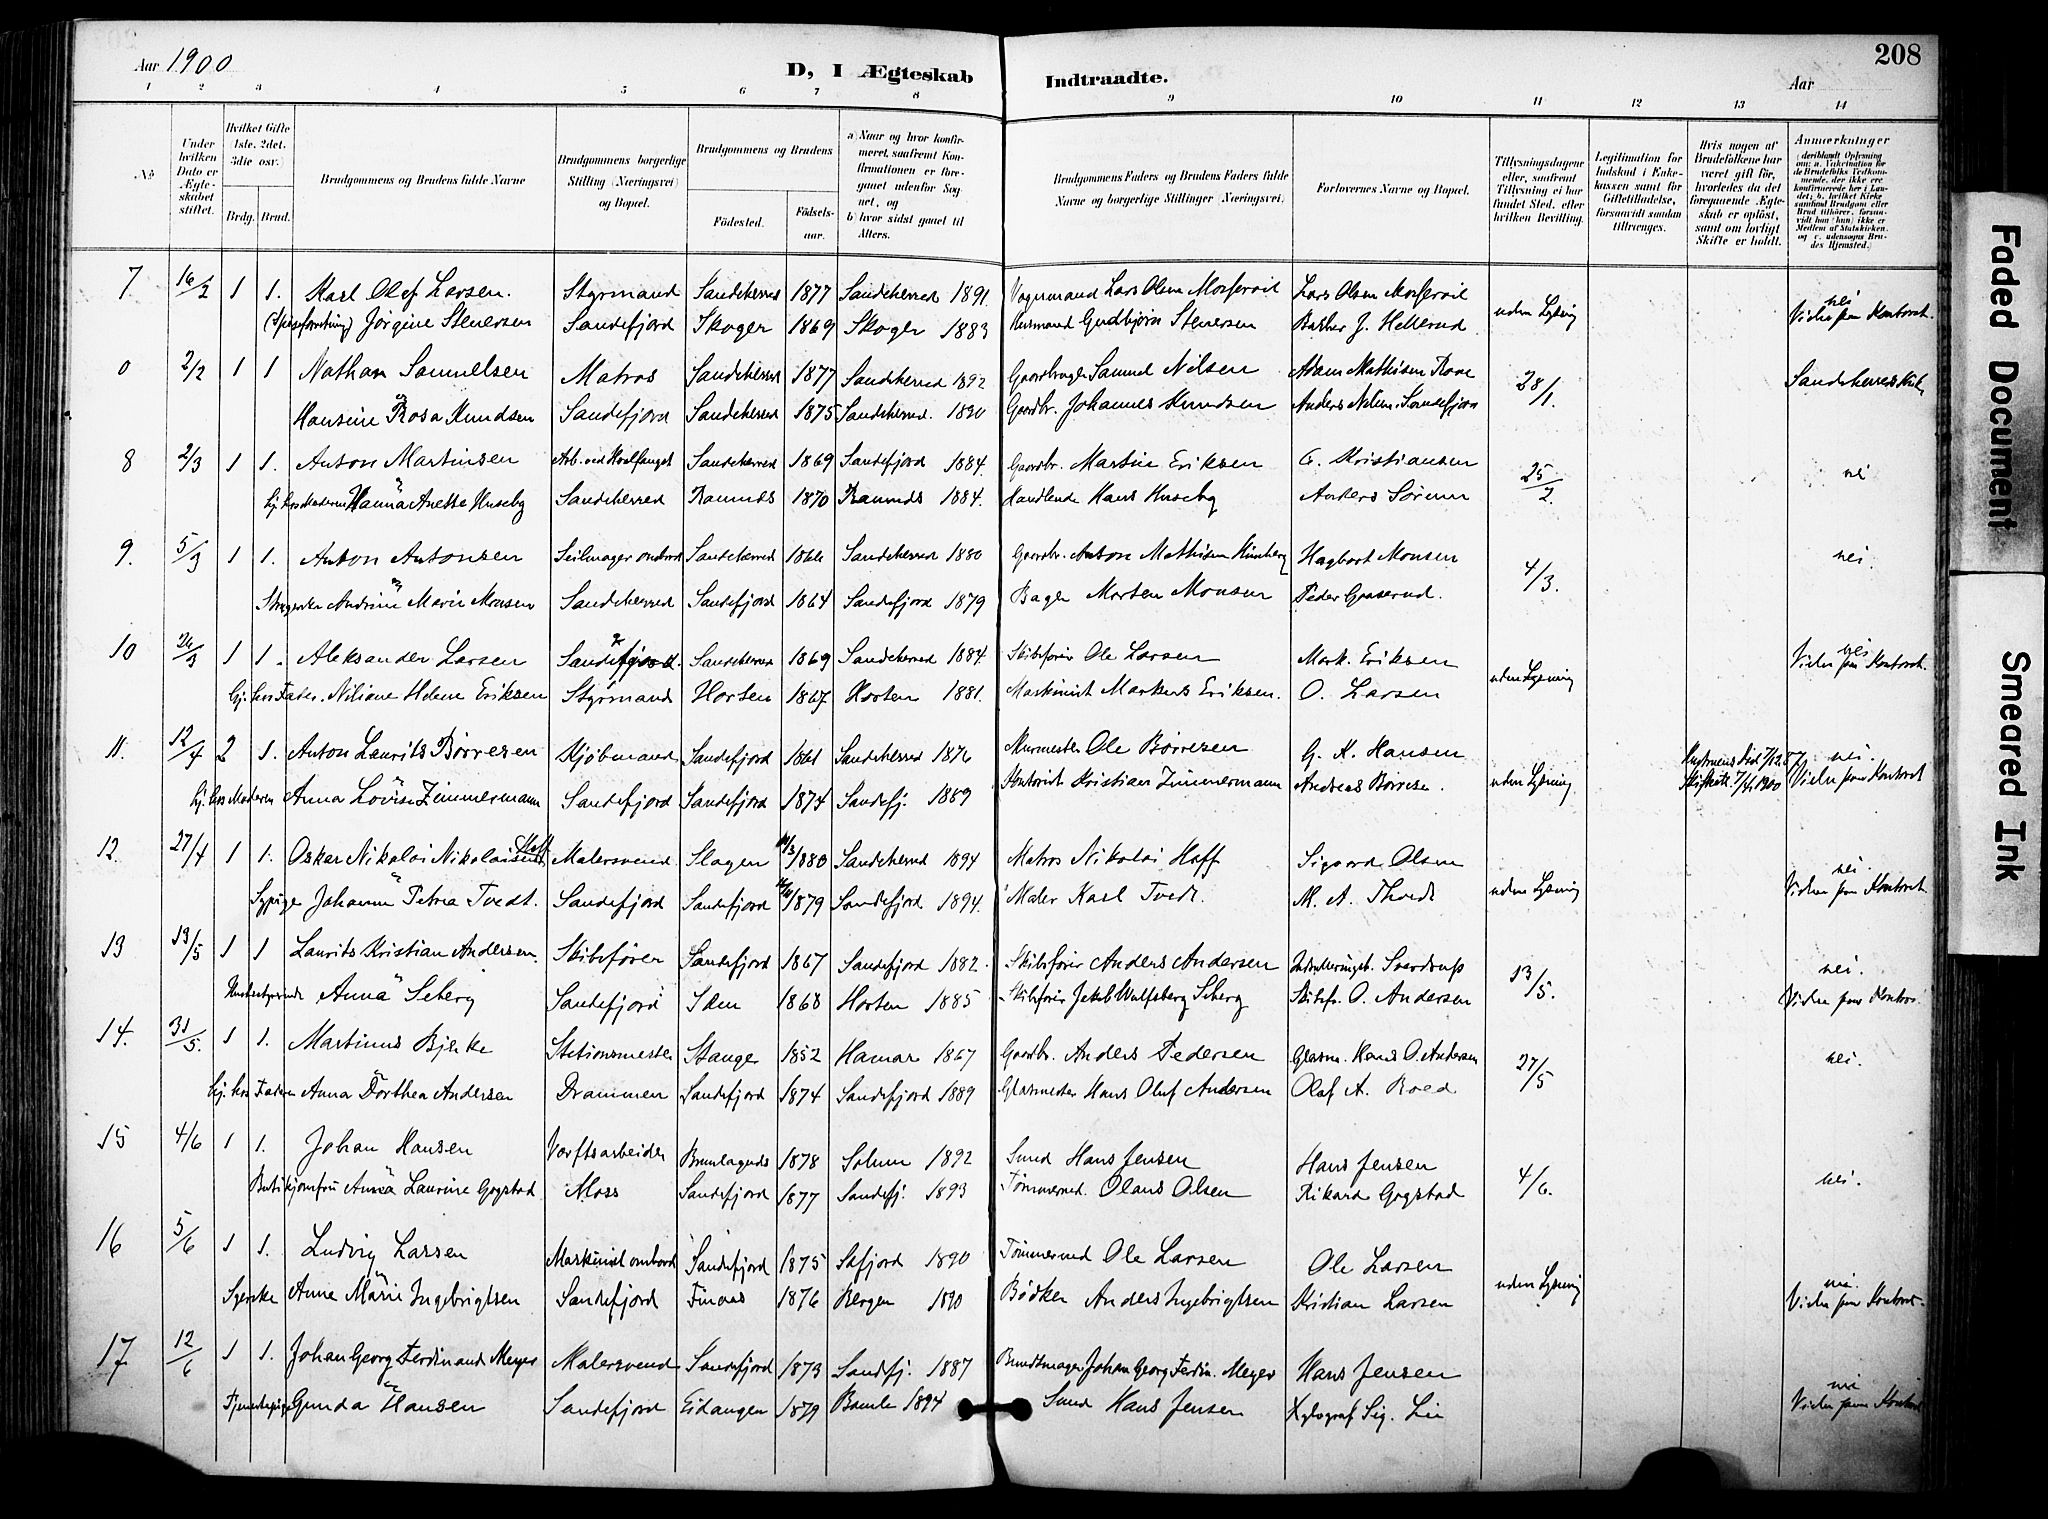 Aar 1900
D, I Ægteskab Indtraadte.
Aar
208
1 2 3 4 5 6 7 8 9 10 11 12 13 14
No
Under hvilken Dato er Ægteskabet stiftet.
Hvilket Gifte (1ste, 2det, 3die osv.)
Brdg. Brud.
Brudgommens og Brudens fulde Navne
Brudgommens borgerlige Stilling (Næringsvei) og Bopæl.
Brudgommens og Brudens
Fødested.
Fødselsaar.
a) Naar og hvor konfirmeret, saafremt Konfirmationen er foregaaet udenfor Sognet, og
b) hvor sidst gaaet til Alters.
Brudgommens Faders og Brudens Faders fulde Navne og borgerlige Stillinger (Næringsvei)
Forlovernes Navne og Bopæl.
Tillysningsdagene eller, saafremt Tillysning ei har fundet Sted, efter hvilken Bevilling.
Legitimation for Indskud i Enkekassen samt for Giftetilladelse, forsaavidt saadan tiltrænges.
Hvis nogen af Brudefolkene har været gift før, hvorledes da det foregaaende Ægteskab er opløst, samt om lovligt Skifte er holdt.
Anmærkninger
7. 16/2 1 1. Karl Olaf Larsen. Styrmand Sandeherred 1877 Sandeherred 1891 Lars Olsen Lars Olsen uden Lysning nei
Jørgine Stenersen Sandefjord Skoger 1869 Skoger 1883 Husmand Gudbjørn Stenersen J. Hellerud Vielse paa Kontoret.
0 2/2 1 1 Nathan Samuelsen Matros Sandeherred 1877 Sandeherred 1892 Gaardbruger Samuel Nilsen Adam Mathisen 28/1. Sandeherred Kirke
Hansine Rosa Knudsen Sandefjord Sandeherred 1875 Sandeherred. 1890 Gaardbr. Johannes Knudsen Anders Nilsen Sandefjord
8 2/3 1 1. Anton Martinsen Arb. ved Hvalfanget Sandeherred 1869 Sandefjord 1884. Gaardbr. Martin Eriksen G. Kristiansen 25/2. nei
Hj. hos Moderen Hanna Anette Huseby Sandeherred Ramnes 1870 Ramnes 1884. Handlende Hans Huseby Anders
9. 5/3 1 1. Anton Antonsen Seilmager ombord Sandeherred 1866 Sandeherred 1880 Gaardbr. Anton Mathisen Hagbart Monsen 4/3. nei.
Andrine Marie Monsen Sandeherred Sandefjord 1864 Sandefjord 1879 Bager Morten Monsen Peder Gaaserud.
10 24/3 1 1. Aleksander Larsen Sandefjord. Sandeherred 1869 Sandeherred 1884. Skibsfører Ole Larsen Mark. Eriksen uden Lysning nei
Hj. hos Fader. Niliane Helene Eriksen Styrmand Horten 1867 Horten 1881. Maskinist Markus Eriksen. O. Larsen Vielse paa Kontoret.
11. 12/4 2 1. Anton Laurits Børresen Kjøbmand Sandefjord 1861 Sandeherred 1876 Murmester Ole Børresen G. K. Hansen uden Lysning nei.
Hj. hos Moderen Anna Lovise Zimmermann Sandefjord Sandefjord 1874 Sandefj. 1889 Kontorist Kristian Zimmermann Andreas Børresen. Vielse paa Kontoret
12. 27/4 1 1. Oskar Nikolai Nikolaisen Hoff Malersvend Slagen 1880 Sandeherred 1894 Matros Nikolai Hoff Sigurd Olsen uden Lysning nei.
Sypige Johanne Petrea Tvedt. Sandefjord Sandefjord 1879 Sandefjord 1894. Maler Karl Tvedt. M. A. Thvedt Vielse paa Kontoret.
13 13/5 1 1 Laurits Kristian Andersen. Skibsfører Sandefjord 1867 Sandefjord 1882. Skibsfører Anders Andersen Sverdrup 13/5. nei.
Anna Seberg Sandefjord Skien 1868 Horten 1885 Skibsfører Jakob Wulfsberg Seberg Skibsf. O. Andersen Vielse paa Kontor.
14. 31/5. 1 1. Martinus Bjerke Stationsmester Stange 1852 Hamar 1867 Gaardbr. Anders Pedersen Glasm. Hans O. Andersen 27/5 nei.
Hj. hos Faderen Anna Dorthea Andersen Drammen Sandefjord 1874 Sandefjord 1889 Glasmester Hans Oluf Andersen Olaf A. Roed
15 4/6 1 1. Johan Hansen Værftsarbeider Brunlagnes 1878 Solum 1892 Smed Hans Jensen Hans Jensen 4/6. nei.
Butikjomfru Anna Laurine Gogstad Moss Sandefjord 1877 Sandefj. 1893 Tømmermd. Olaus Olsen Rikard Gogstad
16 5/6 1 1. Ludvig Larsen Maskinist ombord Sandefjord 1875 Safjord 1890 Tømmermd Ole Larsen Ole Larsen uden Lysning nei
Syerske Anne Marie Ingebrigtsen Sandefjord Finaas 1876 Bergen 1890 Bødker Anders Ingebrigtsen Kristian Larsen Vielse paa Kontoret.
17 12/6 1 1. Johan Georg Ferdinand Meyer Malersvend Sandefjord 1873 Sandefj. 1887 Buntmager Johan Georg Ferdin. Meyer Hans Jensen nei
Tjenestepige Gunda Hansen Sandefjord Eidanger 1879 Bamle 1894 Smed Hans Jensen Xylograf Sig. Lie Vielse paa Kontoret
Faded Document
Smeared Ink